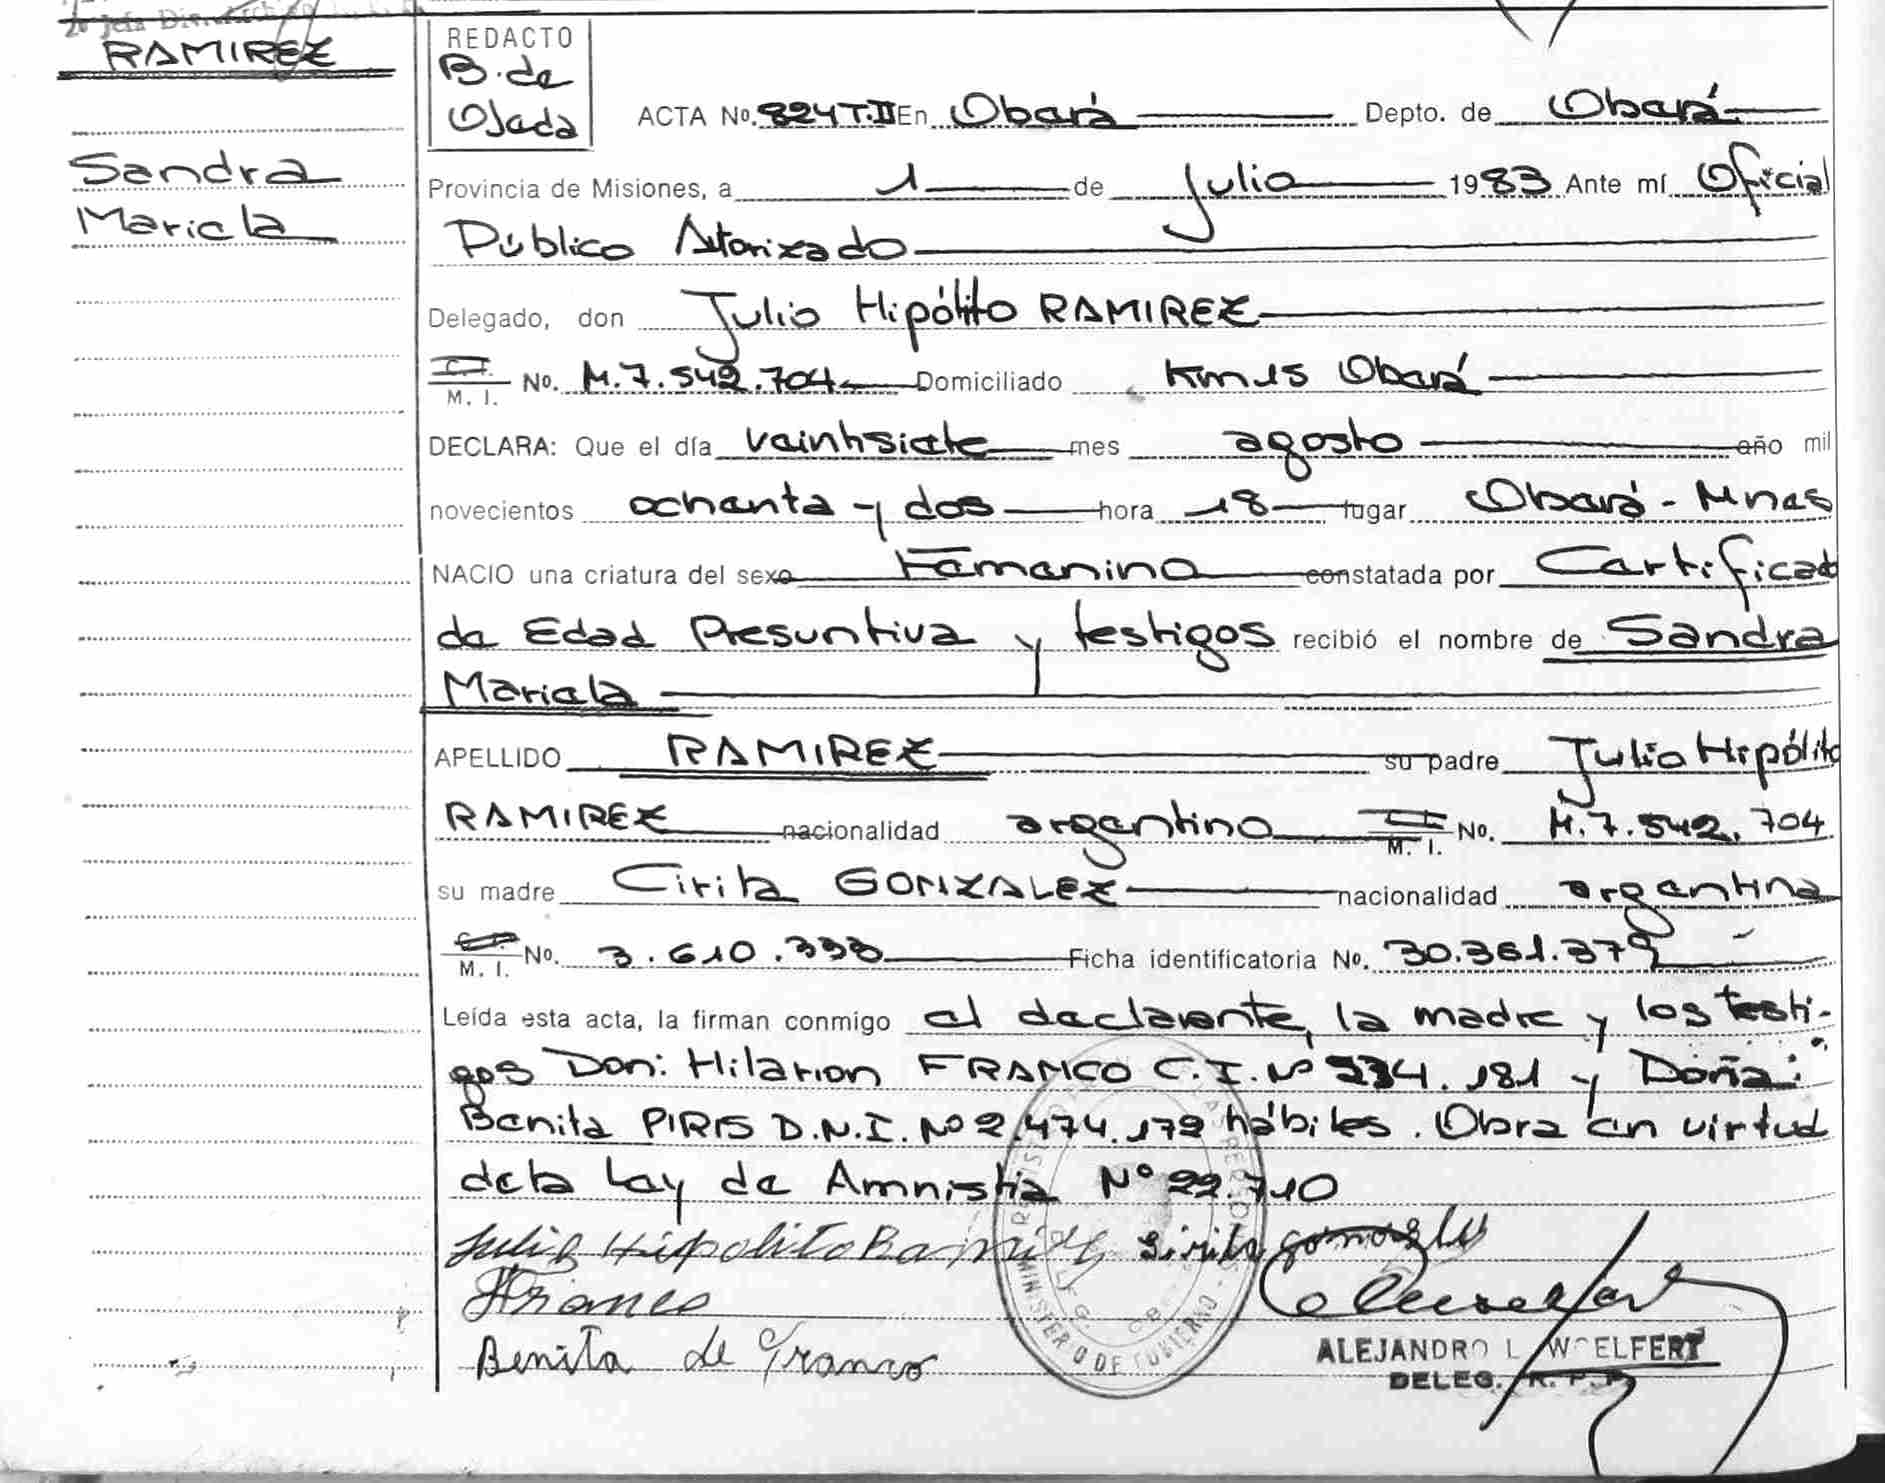 RAMIREZ
Sandra
Mariela
REDACTO
B. de
Ojeda
ACTA No. 824 T.II En Oberá Depto. de Oberá
Provincia de Misiones, a 1 de Julio 1983 Ante mí Oficial
Público Autorizado
Delegado, don Julio Hipólito RAMIREZ
C. I.
M. I. No. M.7.542.704 Domiciliado Km 15 Oberá
DECLARA: Que el día veintisiete mes agosto año mil
novecientos ochenta y dos hora 18 lugar Oberá - Mnes
NACIO una criatura del sexo Femenino constatada por Certificado
de Edad Presuntiva y testigos recibió el nombre de Sandra
Mariela
APELLIDO RAMIREZ su padre Julio Hipólito
RAMIREZ nacionalidad argentino M. I. No. M.7.542.704
su madre Cirila GONZALEZ nacionalidad argentina
M. I. No. 3.610.333 Ficha identificatoria No. 30.361.379
Leída esta acta, la firman conmigo el declarante, la madre y los testi-
gos Don: Hilarion FRANCO C.I. Nº 234.181 y Doña:
Benita PIRIS D.N.I. Nº 2.474.172 hábiles. Obra en virtud
de la Ley de Amnistia Nº 22.710
Julio Hipolito Ramirez Sirila gonzalez
HFranco
Benita de Franco
MINISTERIO DE GOBIERNO
ALEJANDRO L. WOELFERT
DELEG. R. P. P.